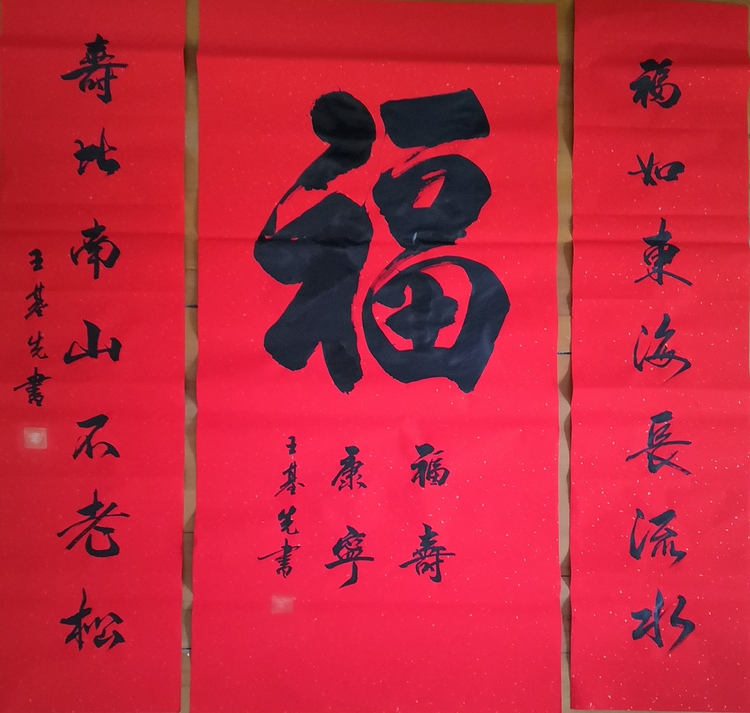 福如東海長流水
福
福壽
康寧
王基先書
壽比南山不老松
王基先書